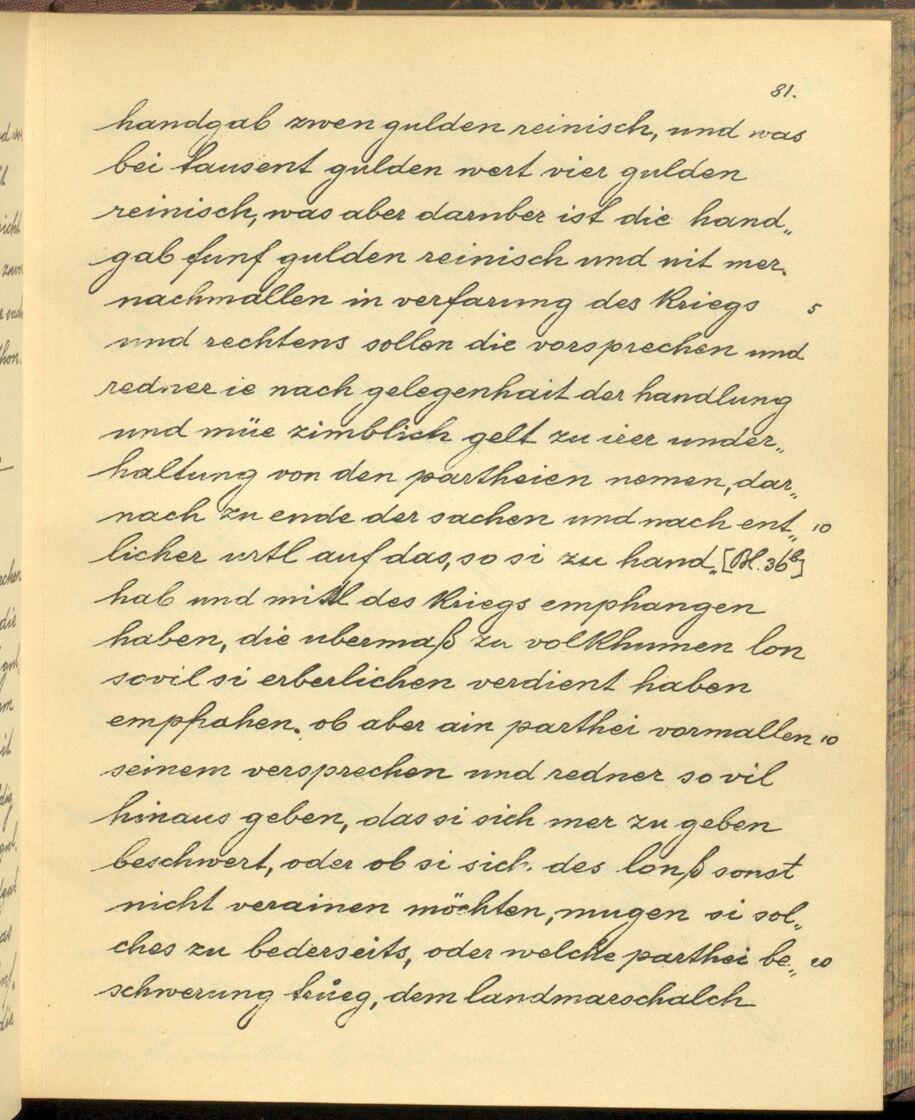 81.
handgab zwen gulden reinisch, und was
bei tausent gulden wert vier gulden
reinisch, was aber darnber ist die hand„
gab funf gulden reinisch und nit mer.
nachmallen in verfarung des kriegs 5
und rechtens sollen die vorsprechen und
redner ie nach gelegenhait der handlung
und müe zimblich gelt zu irer under„
haltung von den partheien nemen, dar„
nach zu ende der sachen und nach ent„ 10
licher urtl auf das, so si zu hand„ [Bl. 36b]
hab und mitl des kriegs emphangen
haben, die ubermaß zu volkhumen lon
sovil si erberlichen verdient haben
empfahen. ob aber ain parthei vormallen 10
seinem versprechen und redner so vil
hinaus geben, das si sich mer zu geben
beschwert, oder ob si sich. des lonß sonst
nicht verainen möchten, mugen si sol„
ches zu bederseits, oder welche parthei be„ 20
schwerung trůeg, dem landmarschalch